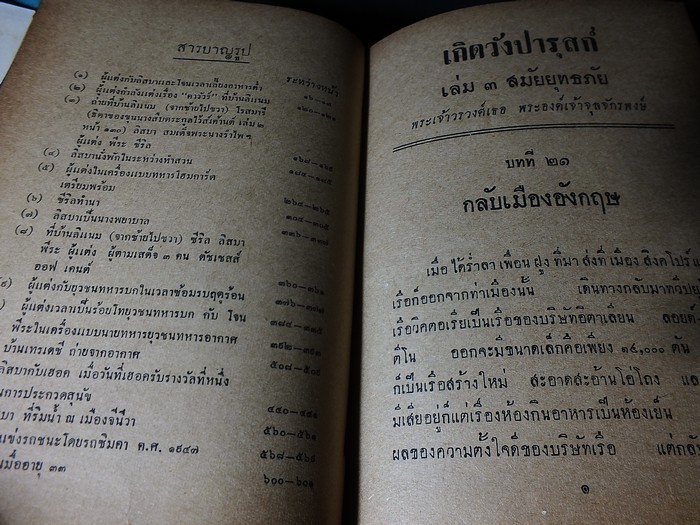 สารบาญรูป
ระหว่างหน้า
(๑) ผู้แต่งกับลิสบาและโจนเวลาเลี้ยงอาหารค่ำ
(๒) ผู้แต่งกำลังแต่งเรื่อง "คาวัวร์" ที่บ้านลิแนม
(๓) ถ่ายที่บ้านลิแนม (จากซ้ายไปขวา) โรสมารี
(ธิดาของขุนนางสืบตระกูลโร๊สเต้านต์ เล่ม ๒
หน้า ๑๓๐) ลิสบา สมเด็จพระนางรำไพ ๆ
ผู้แต่ง พีระ ซีริล
(๔) ลิสบานั่งพักในระหว่างทำสวน
(๕) ผู้แต่งในเครื่องแบบทหารโฮมการ์ด
เตรียมพร้อม
(๖) ซีริลทำนา
๒๖๔–๒๖๕
(๗) ลิสบาเป็นนางพยาบาล
(๘) ที่บ้านลิแนม (จากซ้ายไปขวา) ซีริล ลิสบา
พีระ ผู้แต่ง ผู้ตามเสด็จ ๓ คน ดัชเชสส์
ออฟ เคนต์
๓๖๐–๓๖๑
ผู้แต่งกับยุวชนทหารบกในเวลาซ้อมรบฤดูร้อน
ผู้แต่งเวลาเป็นร้อยโทยุวชนทหารบก กับ โจน
พีระในเครื่องแบบนายทหารยุวชนทหารอากาศ
บ้านเทรเดซี ถ่ายจากอากาศ
ลิสบากับเฮอค เมื่อวันที่เฮอครับรางวัลที่หนึ่ง
นการประกวดสุนัข
บา ที่ริมน้ำ ณ เมืองจีนีวา
๕๖๐–๕๖๑
แข่งรถชนะโดยรถซิมคา ค.ศ. ๑๙๔๗
๕๖๘–๕๖๙
เมื่ออายุ ๓๓
๖๐๐–๖๐๑
เกิดวังปารุสก์
เล่ม ๓ สมัยยุทธภัย
พระเจ้าวรวงศ์เธอ พระองค์เจ้าจุลจักรพงษ์
บทที่ ๒๑
กลับเมืองอังกฤษ
เมื่อ ได้ร่ำลา เพื่อน ฝูง ที่มา ส่งที่ เมือง สิงคโปร์ แ
เรือก็ออกจากท่าเมืองนั้น เดินทางกลับมาทวีปย
เรือวิคตอเรียเป็นเรือของบริษัทอิตาเลียน ลอยด์-
ตีโน ออกจะมีขนาดเล็กคือเพียง ๑๔,๐๐๐ ตัน
ก็เป็นเรือสร้างใหม่ สะอาดสะอ้านโอ่โถง และ
มีเสียอยู่ก็แต่เรื่องห้องกินอาหารเป็นห้องเย็น
ผลของความตั้งใจดีของบริษัทเรือ แต่กลั
๑